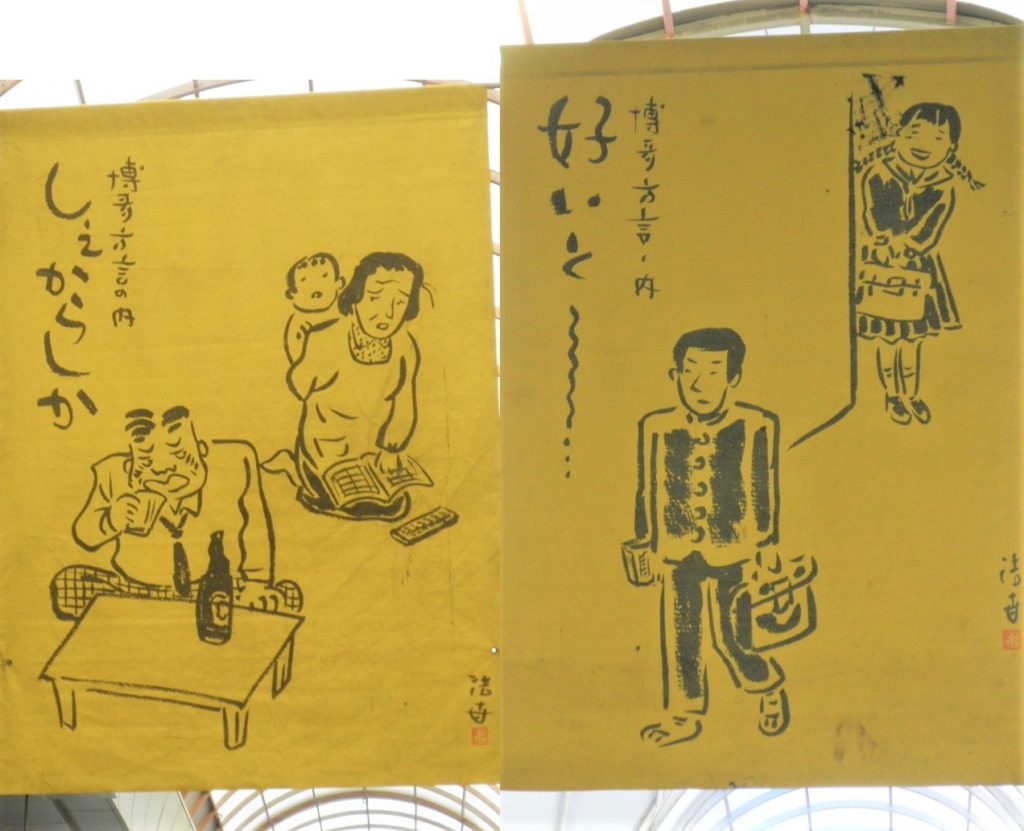 博多方言の内
しぇからしか
博多方言ノ内
好いと〜…